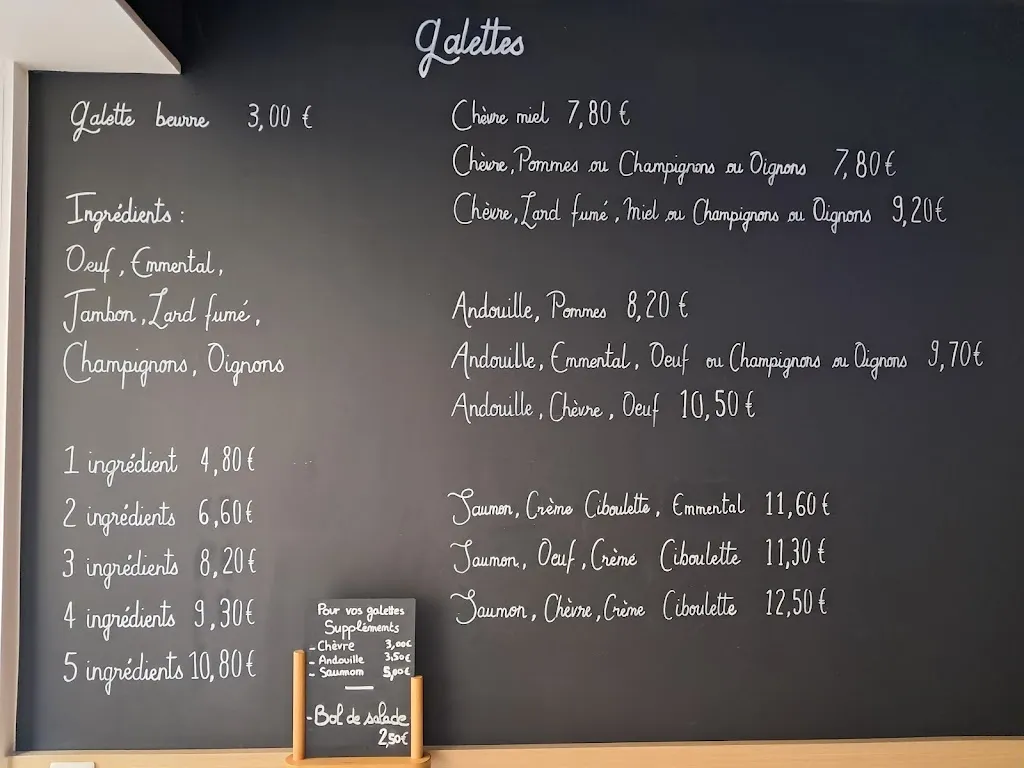 Galettes
Galette beurre 3,00 €
Ingrédients :
Oeuf, Emmental,
Jambon, Lard fumé,
Champignons, Oignons
1 ingrédient 4,80 €
2 ingrédients 6,60 €
3 ingrédients 8,20 €
4 ingrédients 9,30 €
5 ingrédients 10,80 €
Chèvre miel 7,80 €
Chèvre, Pommes ou Champignons ou Oignons 7,80 €
Chèvre, Lard fumé, Miel ou Champignons ou Oignons 9,20 €
Andouille, Pommes 8,20 €
Andouille, Emmental, Oeuf ou Champignons ou Oignons 9,70 €
Andouille, Chèvre, Oeuf 10,50 €
Saumon, Crème Ciboulette, Emmental 11,60 €
Saumon, Oeuf, Crème Ciboulette 11,30 €
Saumon, Chèvre, Crème Ciboulette 12,50 €
Pour vos galettes
Suppléments
- Chèvre 3,00€
- Andouille 3,50€
- Saumom 5,00€
- Bol de salade
2,50€